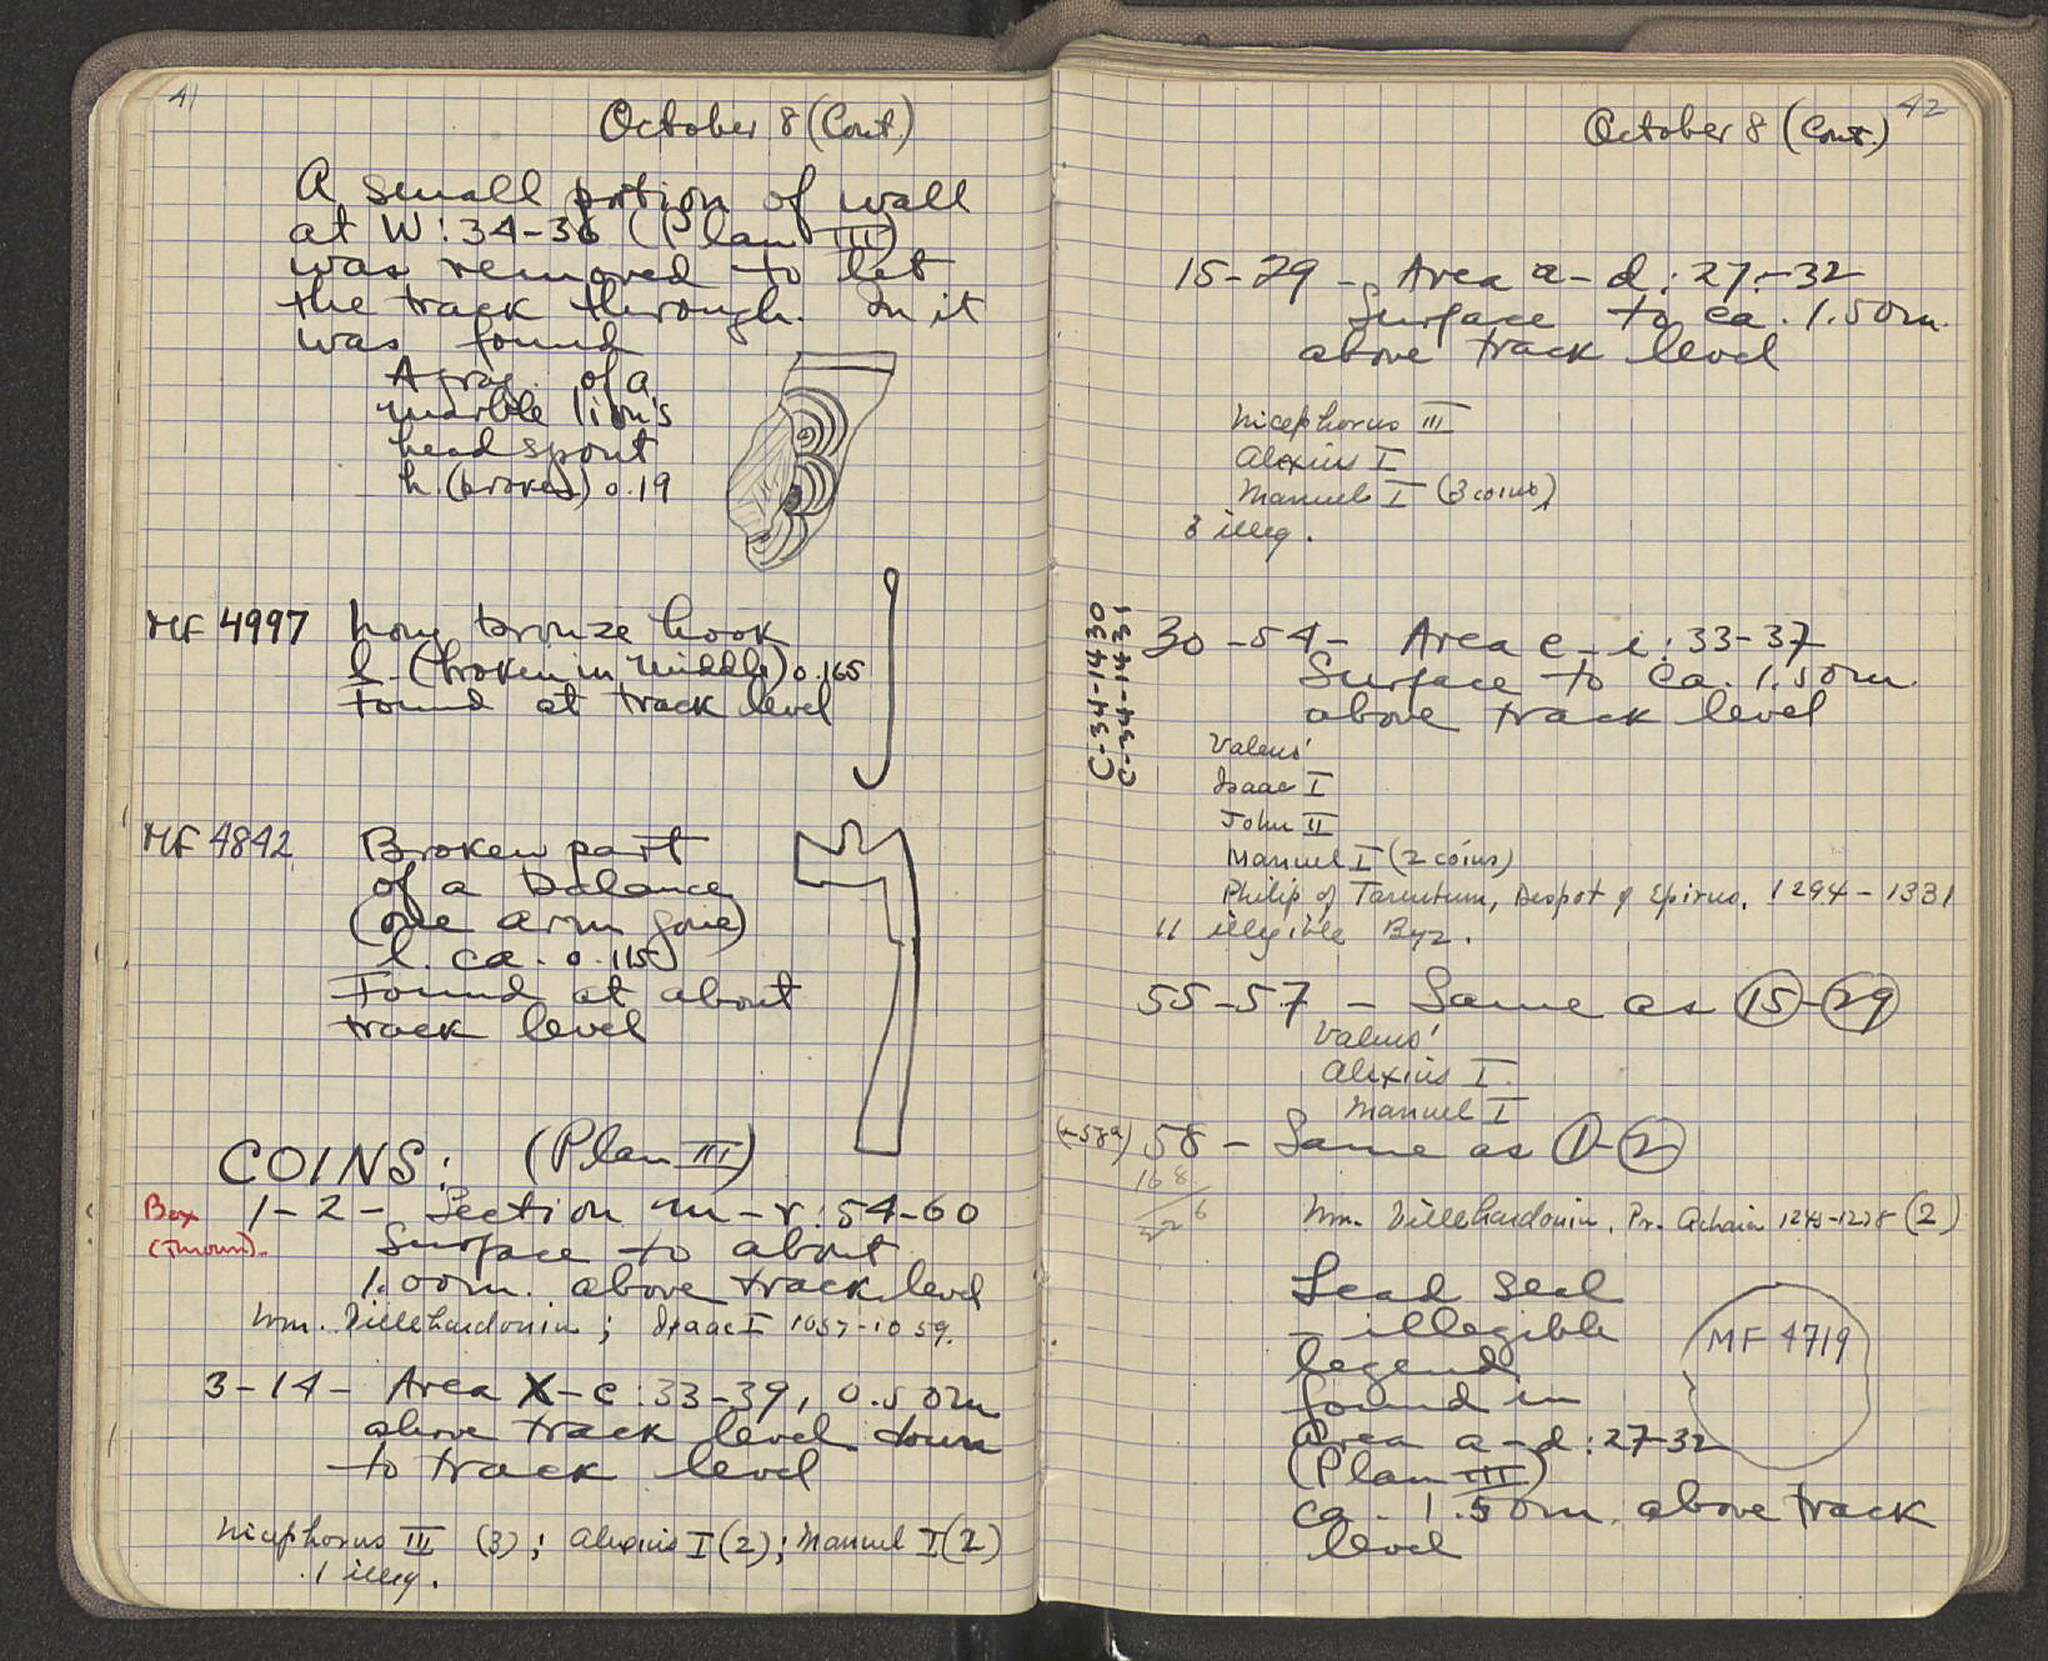 41
October 8 (Cont.)
A small portion of wall
at W:34-36 (Plan III)
was removed to let
the track through. In it
was found
A frag. of a
marble lion's
head spout
h. (broken) 0.19
MF 4997 Long bronze hook
l. (broken in middle) 0.165
Found at track level
MF 4842 Broken part
of a balance
(one arm gone)
l. ca. 0.115
Found at about
track level
COINS: (Plan III)
Box 1-2- Section m-r:54-60
Surface to about
1.00m. above track level
Wm. Villehardouin; Isaac I 1057-1059.
3-14- Area X-c:33-39, 0.50m
above track level down
to track level
Nicephorus III (3); Alexius I (2); Manuel I (2)
1 illeg.
42
October 8 (Cont.)
15-29 - Area a-d:27-32
Surface to ca. 1.50m.
above track level
Nicephorus III
Alexius I
Manuel I (3 coins)
3 illeg.
C-34-1430
C-34-1431
30-54- Area e-i:33-37
Surface to ca. 1.50m.
above track level
Valens'
Isaac I
John II
Manuel I (2 coins)
Philip of Tarentum, Despot of Epirus, 1294-1331
11 illegible Byz.
55-57 - Same as 15-29
Valens'
Alexius I
Manuel I
(+58a) 58 - Same as 1-2
168
Wm. Villehardouin, Pr. Achaia 1245-1278 (2)
Lead Seal
- illegible
legend
found in
Area a-d:27-32
(Plan III)
ca. 1.50m. above track
level
MF 4719